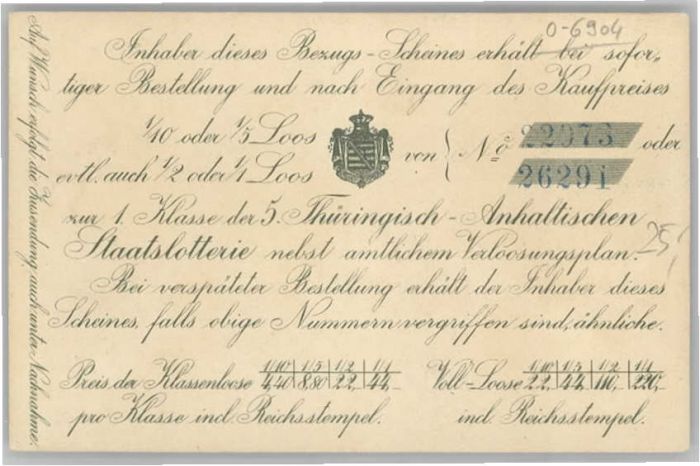 0-6904
Inhaber dieses Bezugs-Scheines erhält bei sofor-
tiger Bestellung und nach Eingang des Kaufpreises
1/10 oder 1/5 Loos
evtl. auch 1/2 oder 1/1 Loos
von { No 22973 oder
26291
zur 1. Klasse der 5. Thüringisch-Anhaltischen
Staatslotterie nebst amtlichem Verloosungsplan.
25
Bei verspäteter Bestellung erhält der Inhaber dieses
Scheines, falls obige Nummern vergriffen sind, ähnliche.
Preis der Klassenloose 1/10 1/5 1/2 1/1
4,40 8,80 22,- 44,-
pro Klasse incl. Reichsstempel.
Voll-Loose 1/10 1/5 1/2 1/1
22,- 44,- 110,- 220,-
incl. Reichsstempel.
Auf Wunsch erfolgt die Zusendung auch unter Nachnahme.